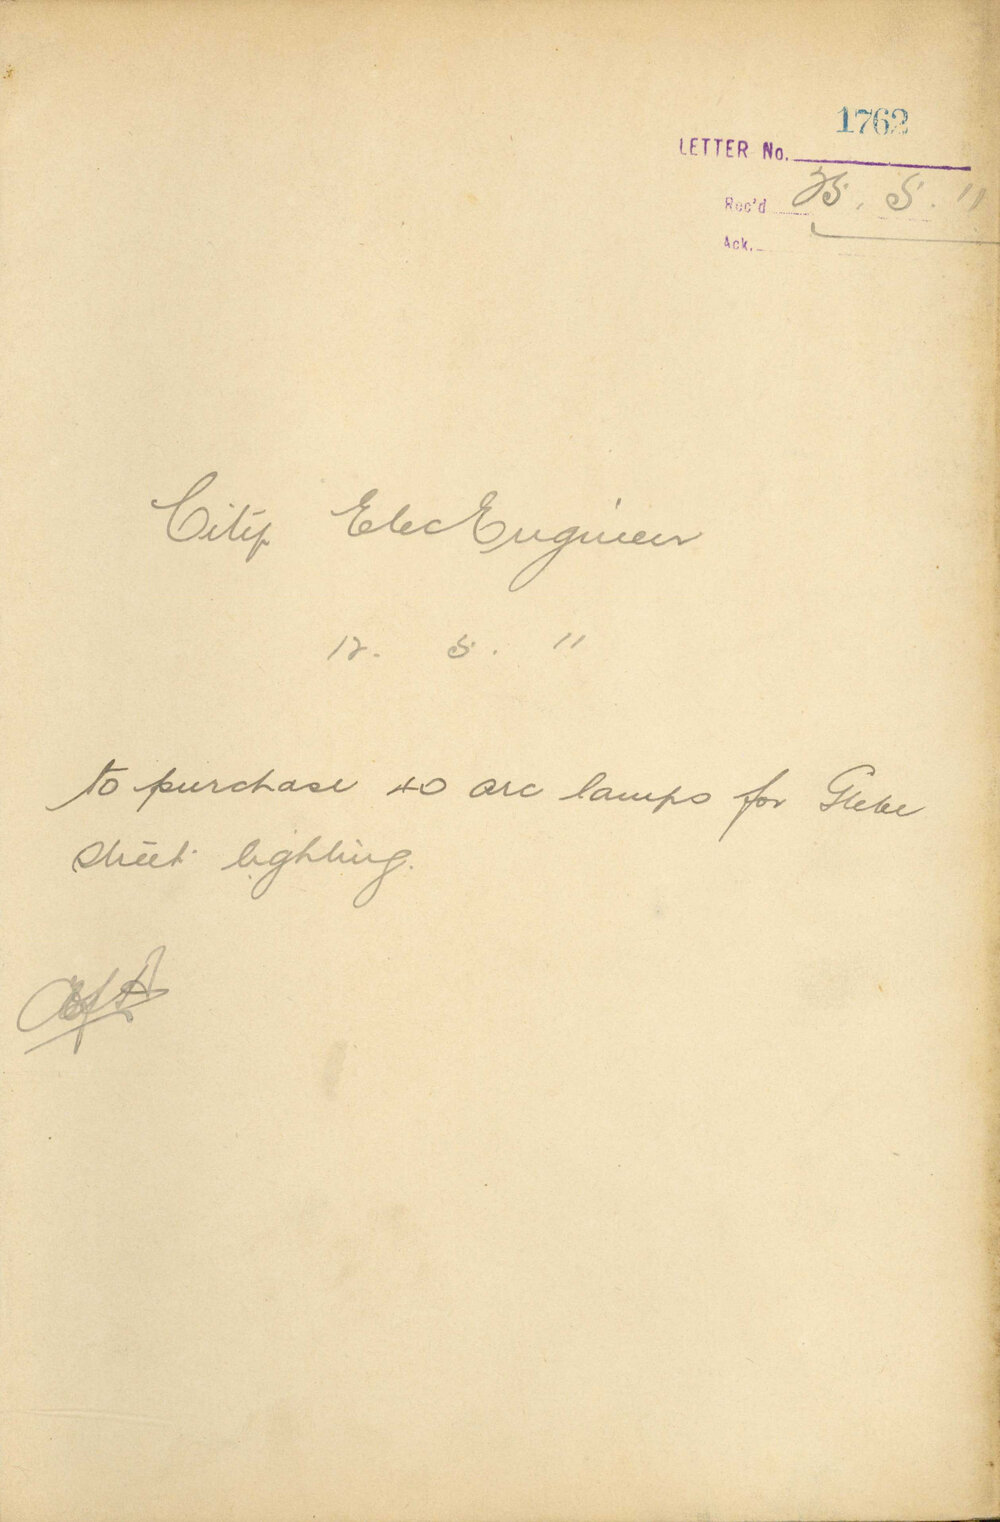 1762
LETTER No.
Rec'd 5. 11
Ack.
City Elec Engineer
12. 5. 11
to purchase 40 arc lamps for Glebe
street lighting.